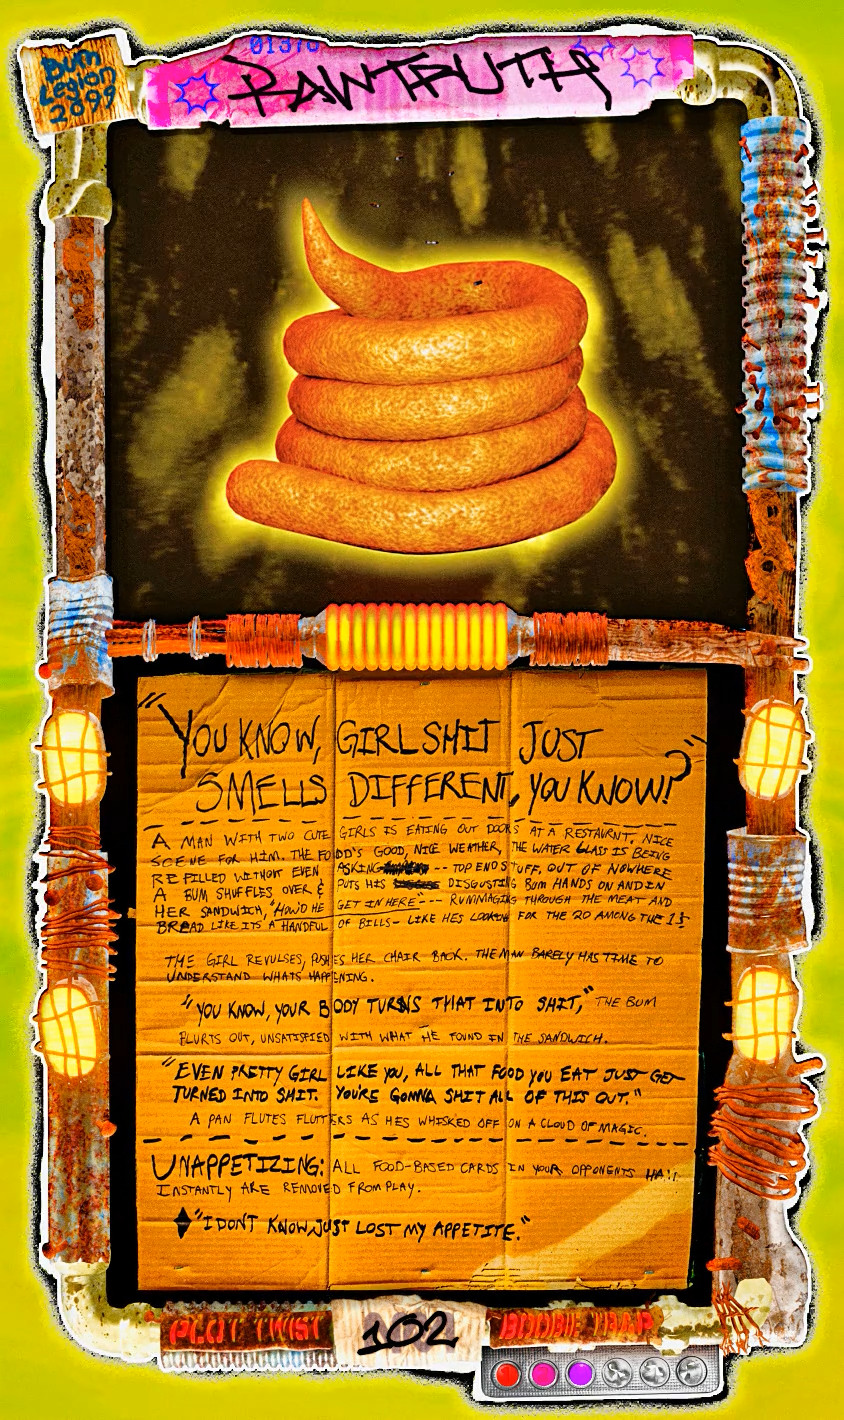 Bum
Legion
2099
01370
RAWTRUTH
"YOU KNOW, GIRL SHIT JUST
SMELLS DIFFERENT, YOU KNOW?"
A MAN WITH TWO CUTE GIRLS IS EATING OUT DOORS AT A RESTAURNT. NICE
SCENE FOR HIM. THE FOOD'S GOOD, NICE WEATHER, THE WATER GLASS IS BEING
REFILLED WITHOUT EVEN ASKING -- TOP END STUFF. OUT OF NOWHERE
A BUM SHUFFLES OVER & PUTS HIS DISGUSTING BUM HANDS ON AND IN
HER SANDWICH, "HOW'D HE GET IN HERE --- RUMMAGING THROUGH THE MEAT AND
BREAD LIKE ITS A HANDFUL OF BILLS - LIKE HES LOOKIN FOR THE 20 AMONG THE 1s
THE GIRL REVULSES, PUSHES HER CHAIR BACK. THE MAN BARELY HAS TIME TO
UNDERSTAND WHATS HAPPENING.
"YOU KNOW, YOUR BODY TURNS THAT INTO SHIT," THE BUM
BLURTS OUT, UNSATISFIED WITH WHAT HE FOUND IN THE SANDWICH.
"EVEN PRETTY GIRL LIKE YOU, ALL THAT FOOD YOU EAT JUST GET
TURNED INTO SHIT. YOU'RE GONNA SHIT ALL OF THIS OUT."
A PAN FLUTES FLUTTERS AS HES WHISKED OFF ON A CLOUD OF MAGIC.
UNAPPETIZING: ALL FOOD-BASED CARDS IN YOUR OPPONENTS
INSTANTLY ARE REMOVED FROM PLAY.
"I DONT KNOW, JUST LOST MY APPETITE."
PLOT TWIST
102
BOOBIE TRAP